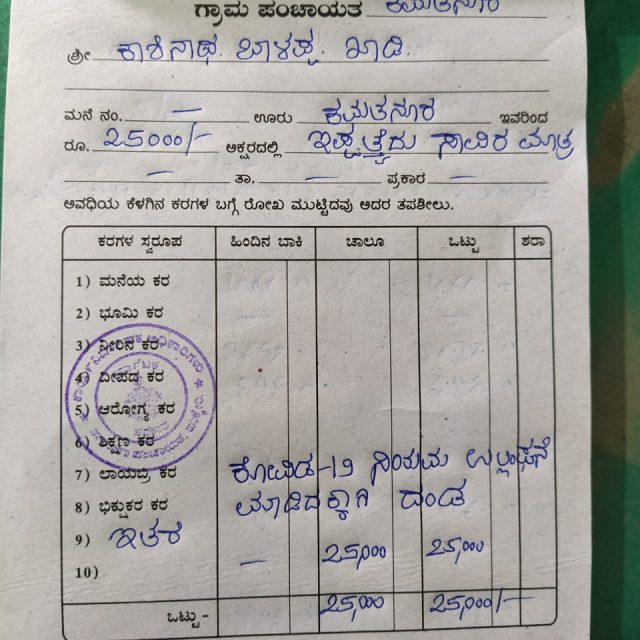 ಗ್ರಾಮ ಪಂಚಾಯತ ಕಮತನೂರ
ಶ್ರೀ ಕಾಶಿನಾಥ ಬಾಳಪ್ಪ ಖಾಡಿ
ಮನೆ ನಂ. — ಊರು ಕಮತನೂರ ಇವರಿಂದ
ರೂ. 25000/- ಅಕ್ಷರದಲ್ಲಿ ಇಪ್ಪತ್ತೈದು ಸಾವಿರ ಮಾತ್ರ
— ತಾ. — ಪ್ರಕಾರ —
ಅವಧಿಯ ಕೆಳಗಿನ ಕರಗಳ ಬಗ್ಗೆ ರೋಖ ಮುಟ್ಟಿದವು ಅದರ ತಪಶೀಲು.
ಕರಗಳ ಸ್ವರೂಪ ಹಿಂದಿನ ಬಾಕಿ ಚಾಲೂ ಒಟ್ಟು ಶರಾ
1) ಮನೆಯ ಕರ
2) ಭೂಮಿ ಕರ
3) ನೀರಿನ ಕರ
4) ದೀಪದ ಕರ
5) ಆರೋಗ್ಯ ಕರ
6) ಶಿಕ್ಷಣ ಕರ
7) ಲಾಯಬ್ರಿ ಕರ ಕೋವಿಡ-19 ನಿಯಮ ಉಲ್ಲಂಘನೆ
8) ಭಕ್ಷುಕರ ಕರ ಮಾಡಿದಕ್ಕಾಗಿ ದಂಡ
9) ಇತರ — 25,000 25,000
10)
ಒಟ್ಟು - 25,000 25,000/-